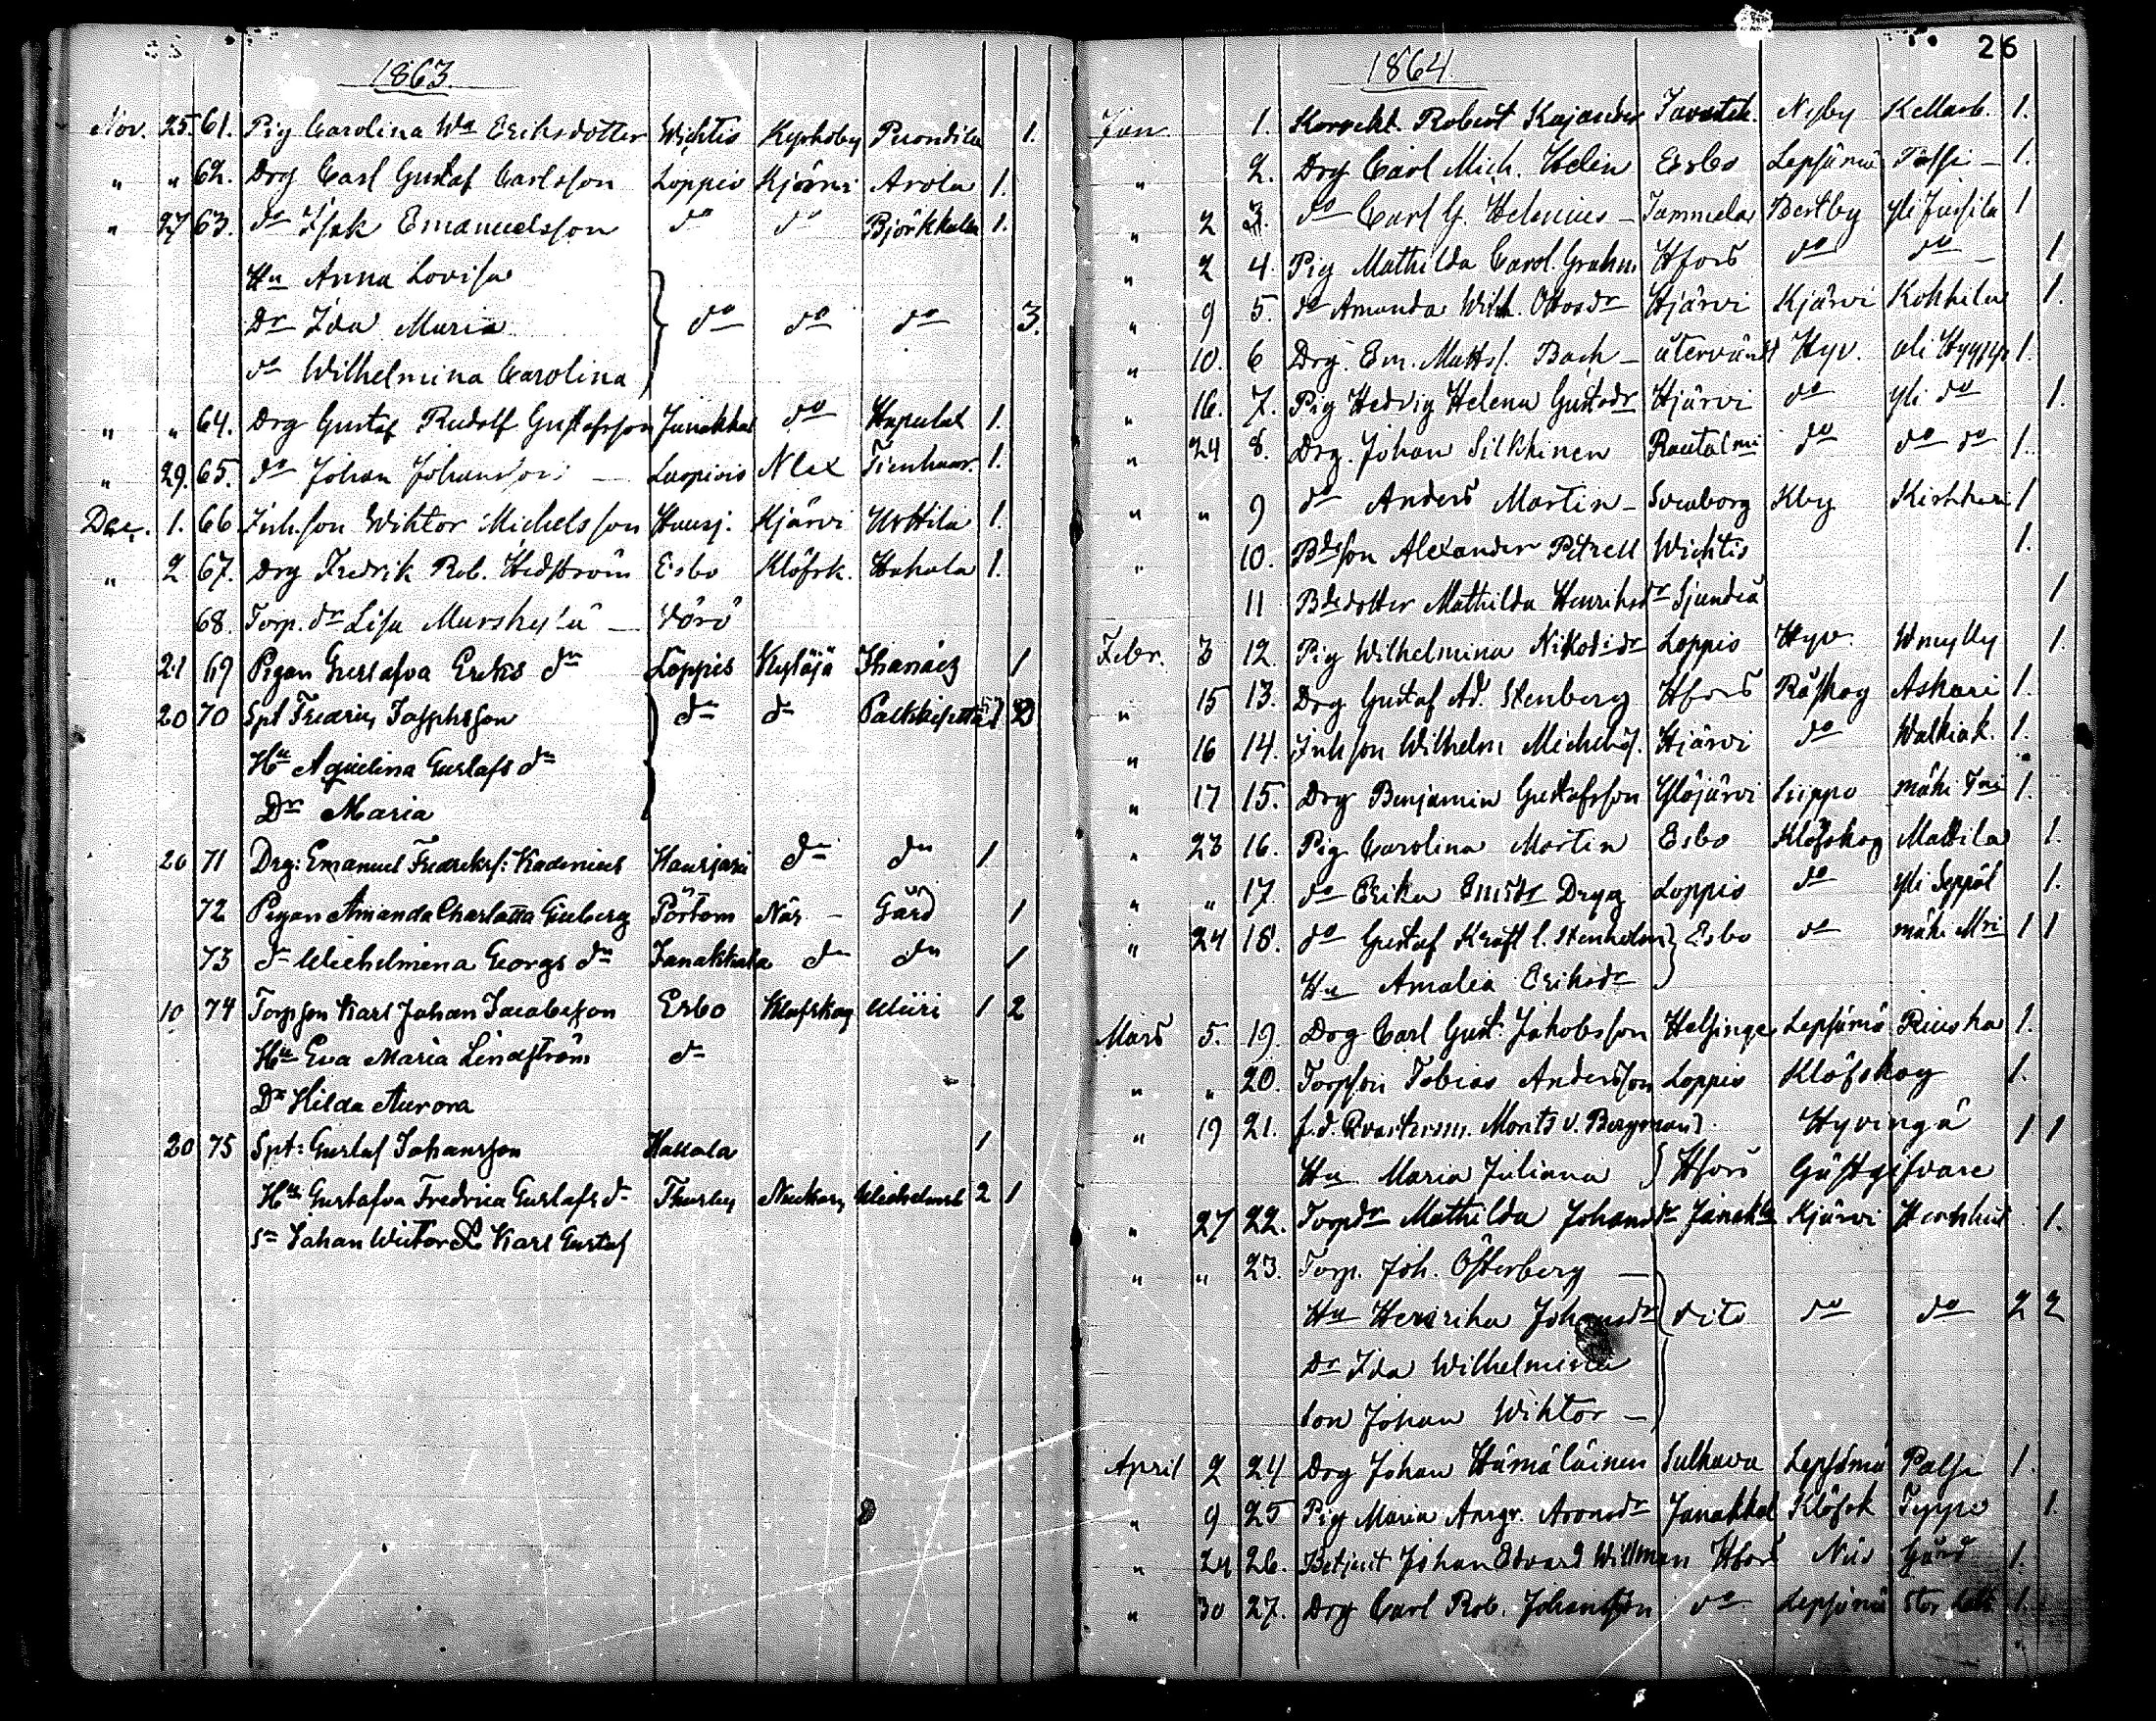 1863.
Nov. 25. 61. Pig Carolina Wa Eriksdotter Wichtis Kyrkoby 1.
" " 62. Drg Carl Gustaf Carlsson Loppis Kjärvi Arola 1.
" 27 63. do Isak Emanuelsson do do Björkkulla 1.
Hu Anna Lovisa
Dr Ida Maria do do do 3.
do Wilhelmina Carolina
" " 64. Drg Gustaf Rudolf Gustafsson Janakkal do 1.
" 29. 65. do Johan Johansson — 1.
Dec. 1. 66 Inh.son Wiktor Michelsson Hausj. Kjärvi Uottila 1.
" 2 67. Drg Fredrik Rob. Hedström Esbo Klöfsk. Hakala 1.
68. Torp. dr Lisa — Vörö
21 69 Pigan Gustafva Eriks dr Loppis Kytäjä 1
20 70 Spt Fredric Josephsson do do
Hu Aqvilina Gustafs dr
Dr Maria
20 71 Drg: Emanuel Fredriksf: Hausjärvi do do 1
72 Pigan Amanda Charlotta Pörtom Näs — Gård 1
73 do Wilhelmina Georgs dr Janakkala do do 1
10 74 Torpson Karl Johan Jacobsson Esbo Klöfskog 1 2
Hu Eva Maria Lindström do
Dr Hilda Aurora
20 75 Spt: Gustaf Johansson 1
Hu Gustafva Fredrica Gustafs dr Thusby 2 1
Sn Johan Victor & Karl Gustaf
26
1864.
Jan 1. Robert Kajander Tavastk. Nyby 1.
" 2. Drg Carl Mich. Helin Esbo Lepsämä — 1.
" 2 3. do Carl G. Helenius — Tammela yli Jussila 1
" 2 4. Pig Mathilda Carol. Grahm Hfors do do — 1
" 9 5. do Amanda Wilh. Ottosdr Hjärvi Kjärvi Kokkila 1.
" 10. 6 Drg. Em. Mattsf. Bach — Hyv. 1.
" 16. 7. Pig Hedvig Helena Gustsdr Hjärvi do yli do 1.
" 24 8. Drg. Johan Silkkinen Rautalmi do do do 1.
" " 9 do Anders Martin — Sveaborg Kby 1
" 10. Bdeson Alexander Petrell Wichtis 1.
11 Bdedotter Mathilda Henriksdr Sjundeå 1
Febr. 3 12. Pig Wilhelmina Loppis Hyv. 1.
" 15 13. Drg Gustaf Ad. Stenberg Hfors Röskog Askari 1.
" 16 14. Inhson Wilhelm Hjärvi do Walkiak. 1.
" 17 15. Drg Benjamin Gustafsson Ylöjärvi 1.
" 23 16. Pig Carolina Martin Esbo Klöfskog Mattila 1.
" " 17. do Erika Loppis do yli Seppäl 1.
" 24 18. do Gustaf Stenholm Esbo do 1 1
Hu Amalia Eriksdr
Mars 5. 19. Drg Carl Gust. Jakobsson Helsinge Lepsämä 1.
" " 20. Torpson Tobias Andersson Loppis Klöfskog 1.
" 19 21. f.d. Qvarterm. Morits v. Bergman Hyvingä 1 1
Hu Maria Juliana Hfors Gästgifvare
" 27 22. Torpdr Mathilda Johansdr Janakka Kjärvi 1.
" " 23. Torp. Joh. Österberg —
Hu Henrika Johansdr dito do do 2 2
Dr Ida Wilhelmina
Son Johan Wiktor —
April 2 24 Drg Johan Hämäläinen Sulkava Lepsämä Palsi 1.
" 9 25 Pig Maria Aronsdr Janakkal Klöfsk 1.
" 24 26. Betjent Johan Edvard Willman Hfors Näs Gård 1.
" 30 27. Drg Carl Rob. Johansson do Lepsämä 1.